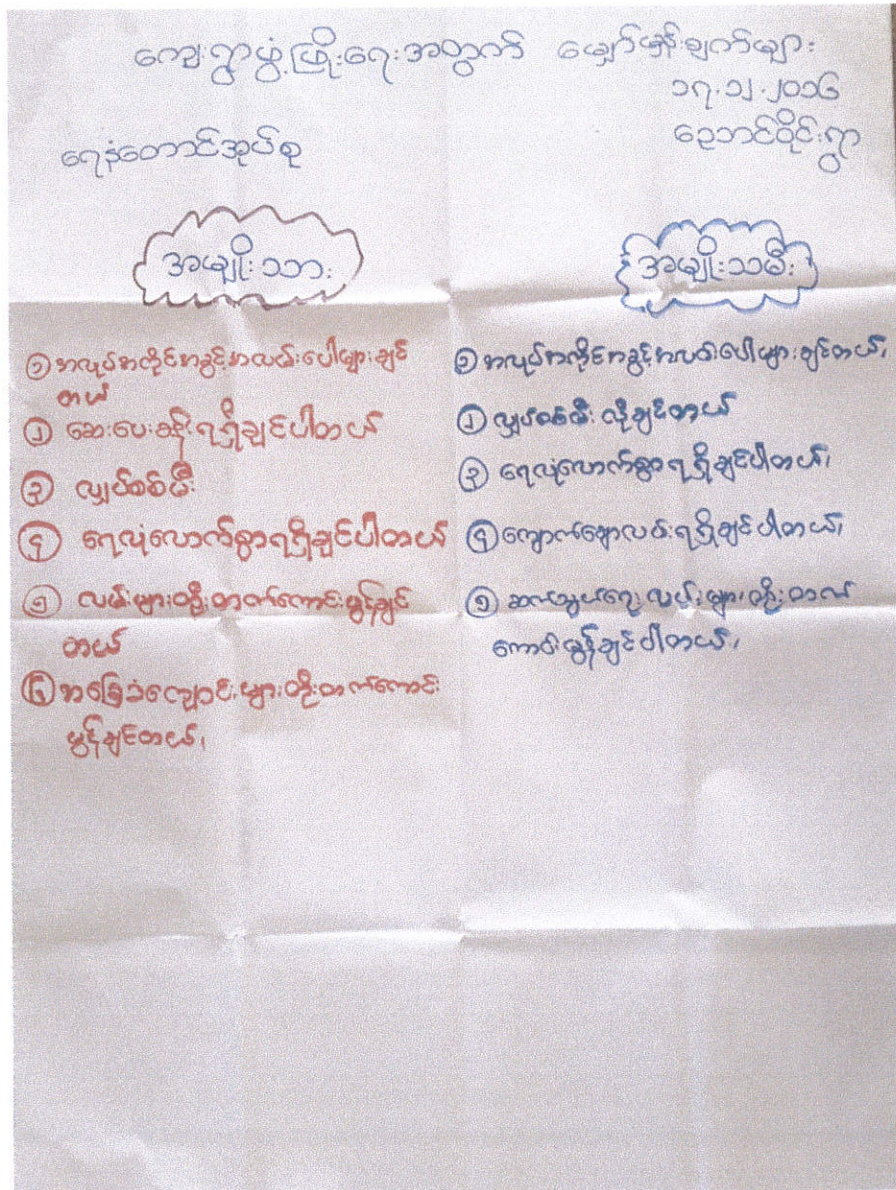 ကျေးရွာဖွံ့ဖြိုးရေးအတွက် မျှော်မှန်းချက်များ
၁၇.၁၂.၂၀၁၆
ရေနံတောင်အုပ်စု
ညောင်ဝိုင်းရွာ
အမျိုးသား
၁ အလုပ်အကိုင်အခွင့်အလမ်းပေါများချင်
တယ်
၂ ဆေးပေးခန်းရရှိချင်ပါတယ်
၃ လျှပ်စစ်မီး
၄ ရေလုံလောက်စွာရရှိချင်ပါတယ်
၅ လမ်းများတိုးတက်ကောင်းမွန်ချင်
တယ်
၆ အခြေခံကျောင်းများတိုးတက်ကောင်း
မွန်ချင်တယ်၊
အမျိုးသမီး
၁ အလုပ်အကိုင်အခွင့်အလမ်းပေါများချင်တယ်၊
၂ လျှပ်စစ်မီးလိုချင်တယ်
၃ ရေလုံလောက်စွာရရှိချင်ပါတယ်၊
၄ ကျောက်ချောလမ်းရရှိချင်ပါတယ်၊
၅ ဆက်သွယ်ရေးလမ်းများတိုးတက်
ကောင်းမွန်ချင်ပါတယ်၊